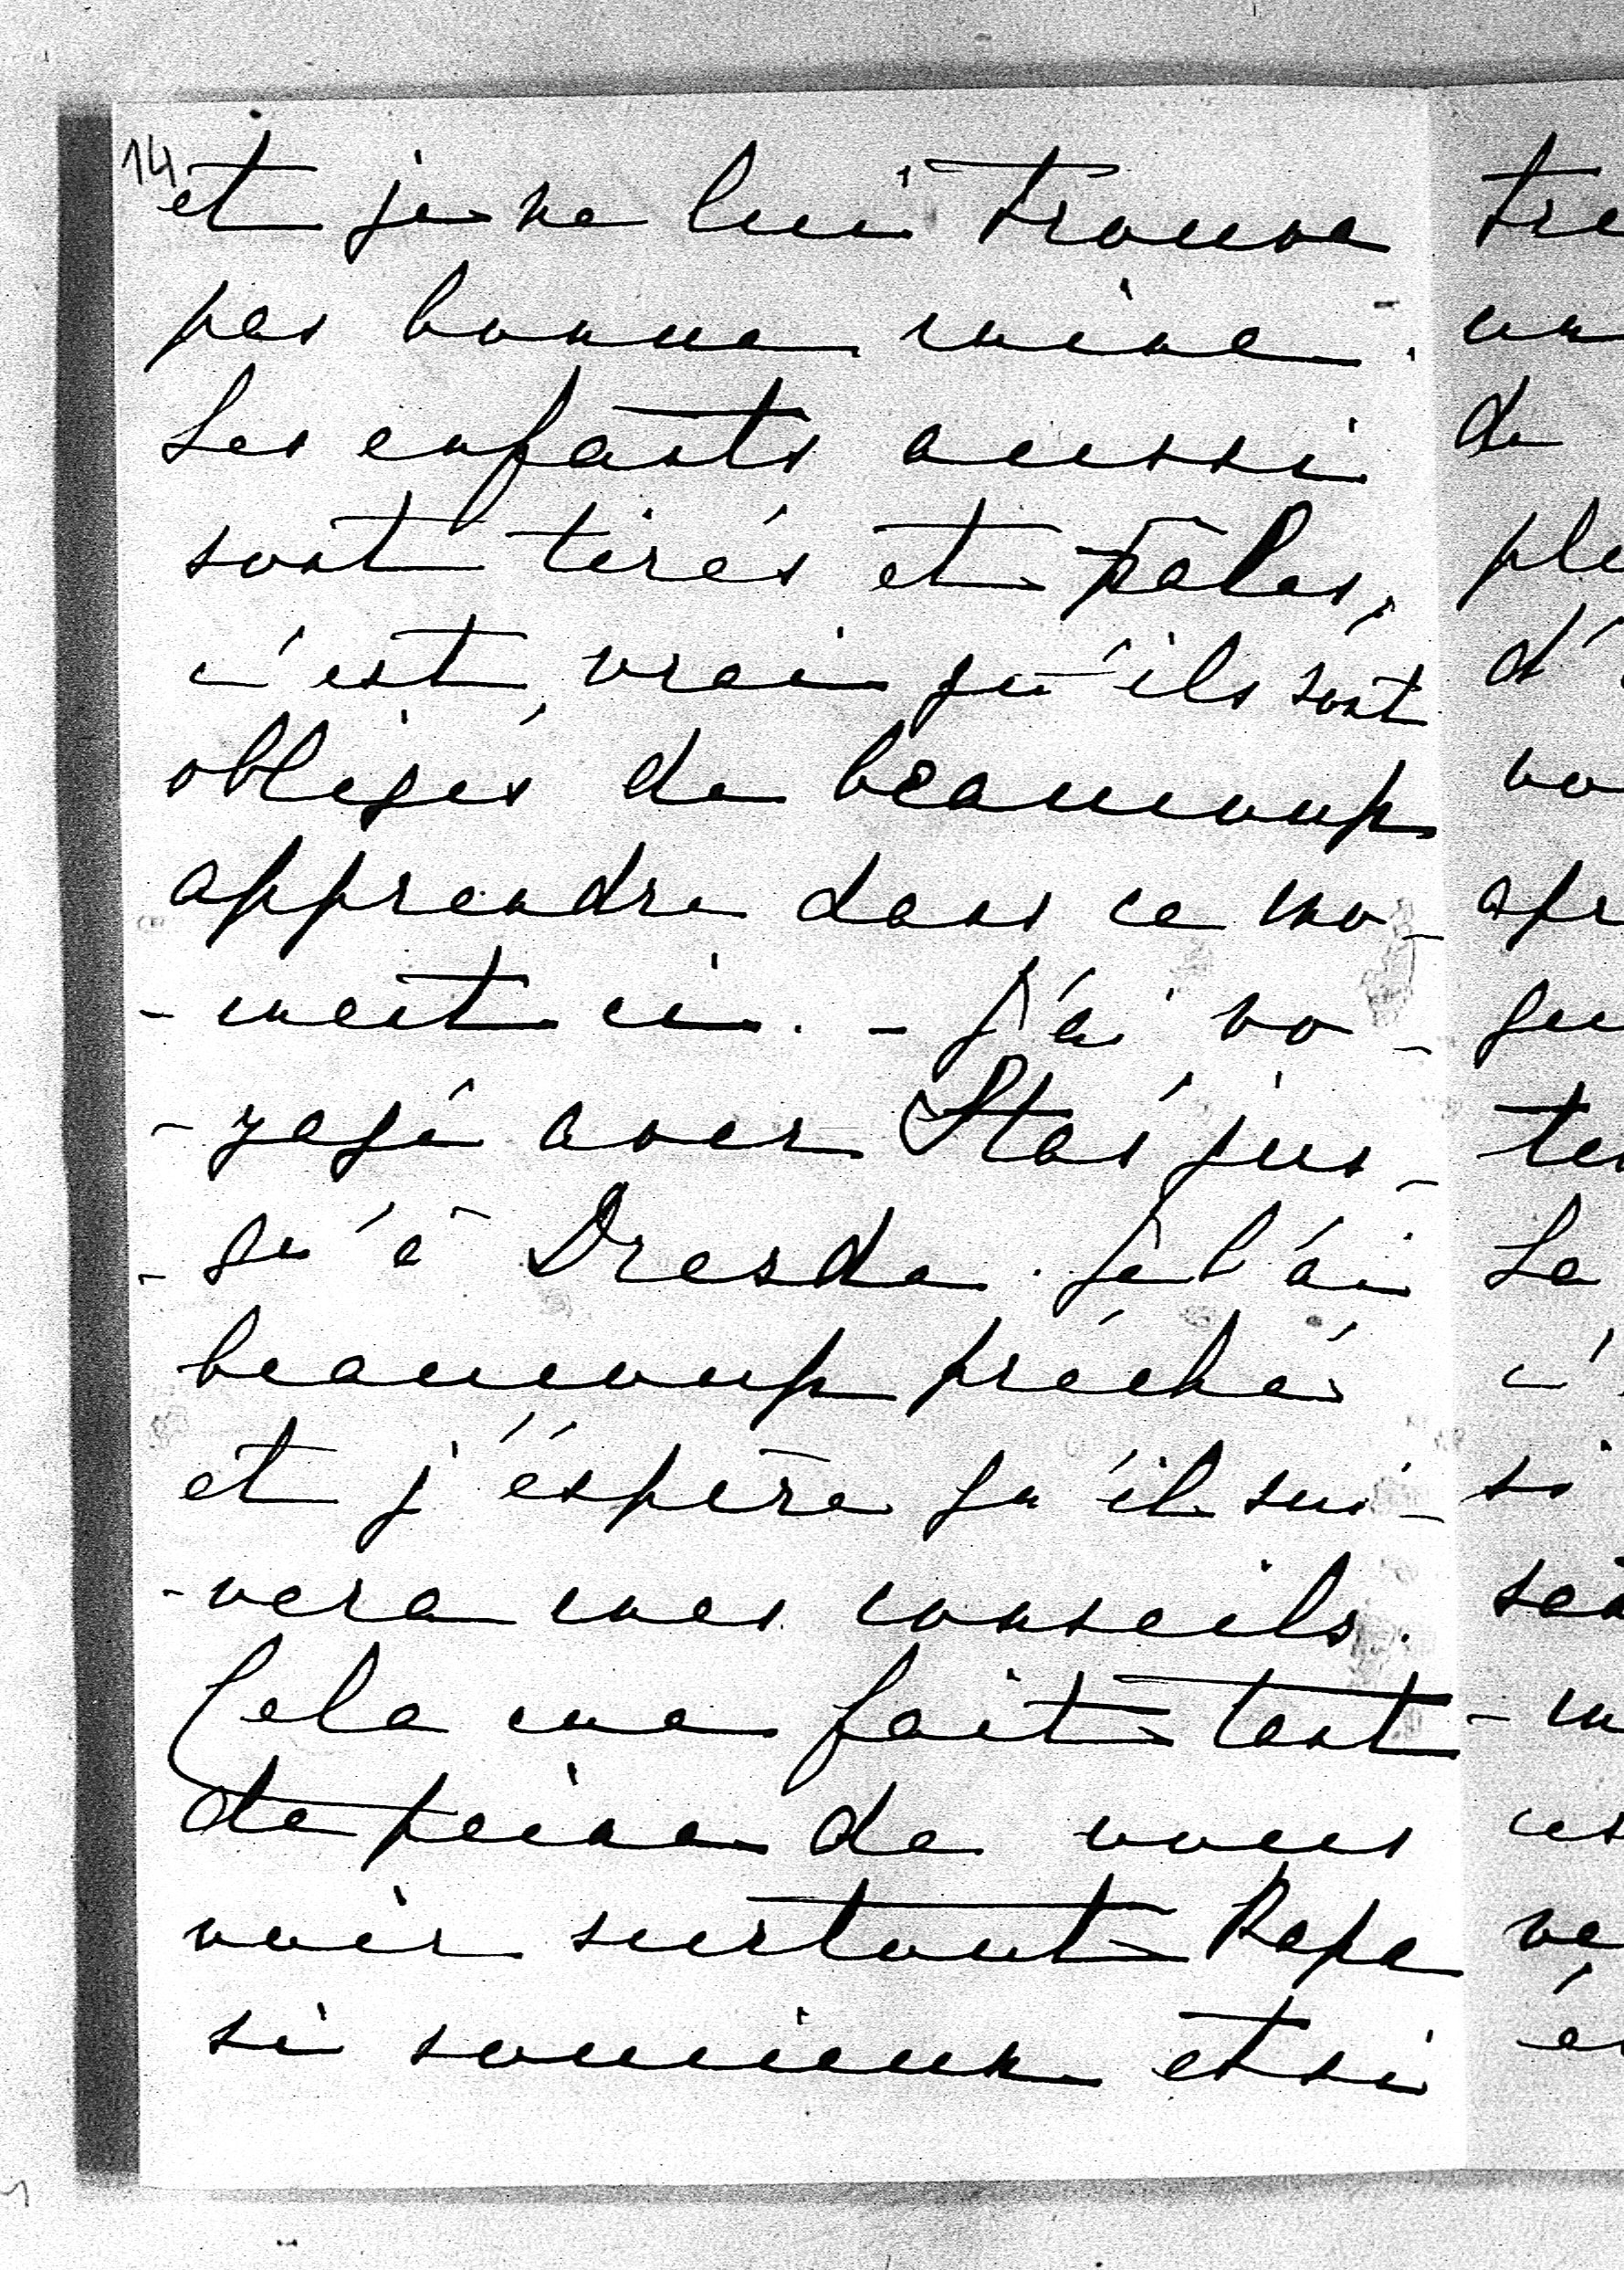 14
et je ne lui trouve
pas bonne mine.
Les enfants aussi
sont tirés et pâles,
c'est vrai qu'ils sont
obligés de beaucoup
apprendre dans ce mo-
-ment ci. - J'ai vo-
-yagé avec Stas jus-
-qu'à Dresde. Je l'ai
beaucoup prêché
et j'éspère qu'il sui-
-vera mes conseils.
Cela me fait tant
de peine de vous
voir surtout Papa
si soucieux et si